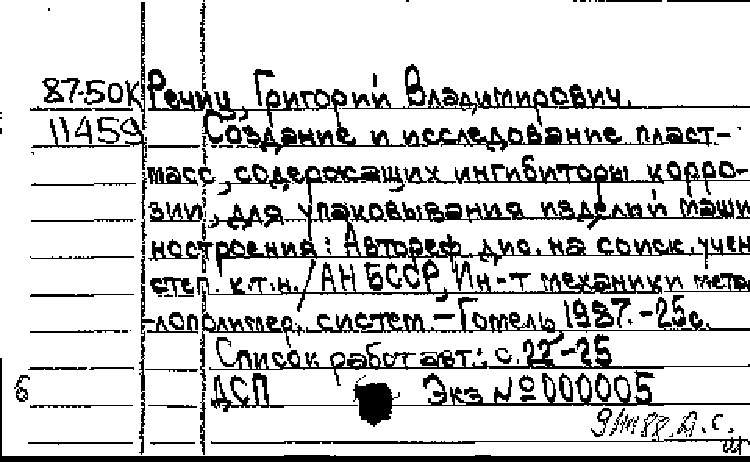 87-50К Речиц, Григорий Владимирович.
11459 Создание и исследование пласт-
масс, содержащих ингибиторы корро-
зии, для упаковывания изделий маши
ностроения: Автореф. дис. на соиск. учен
степ. к.т.н. / АН БССР, Ин-т механики мета
-лополимер. систем. - Гомель, 1987. - 25с.
Список работ авт.: с. 22-25
6 ДСП Экз № 000005
88. Д.С.